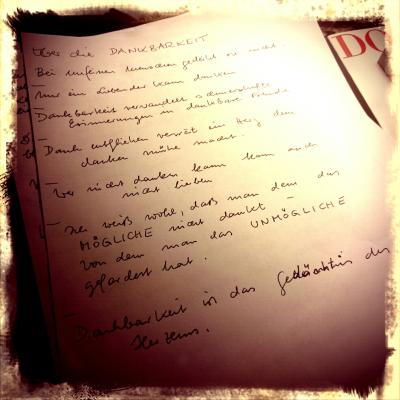 Über die DANKBARKEIT
Bei unfeinen Menschen gedeiht sie nicht.
Nur ein Liebender kann danken
Dankbarkeit verwandelt schmerzhafte
Erinnerungen in dankbare Freude
Dank verrät ein Herz dem
danken mühe macht.
Wer nicht danken kann kann auch
nicht lieben
Ich weiß wohl, daß man dem das
MÖGLICHE nicht dankt –
von dem man das UNMÖGLICHE
gefordert hat.
Dankbarkeit ist das Gedächtnis des
Herzens.
DO